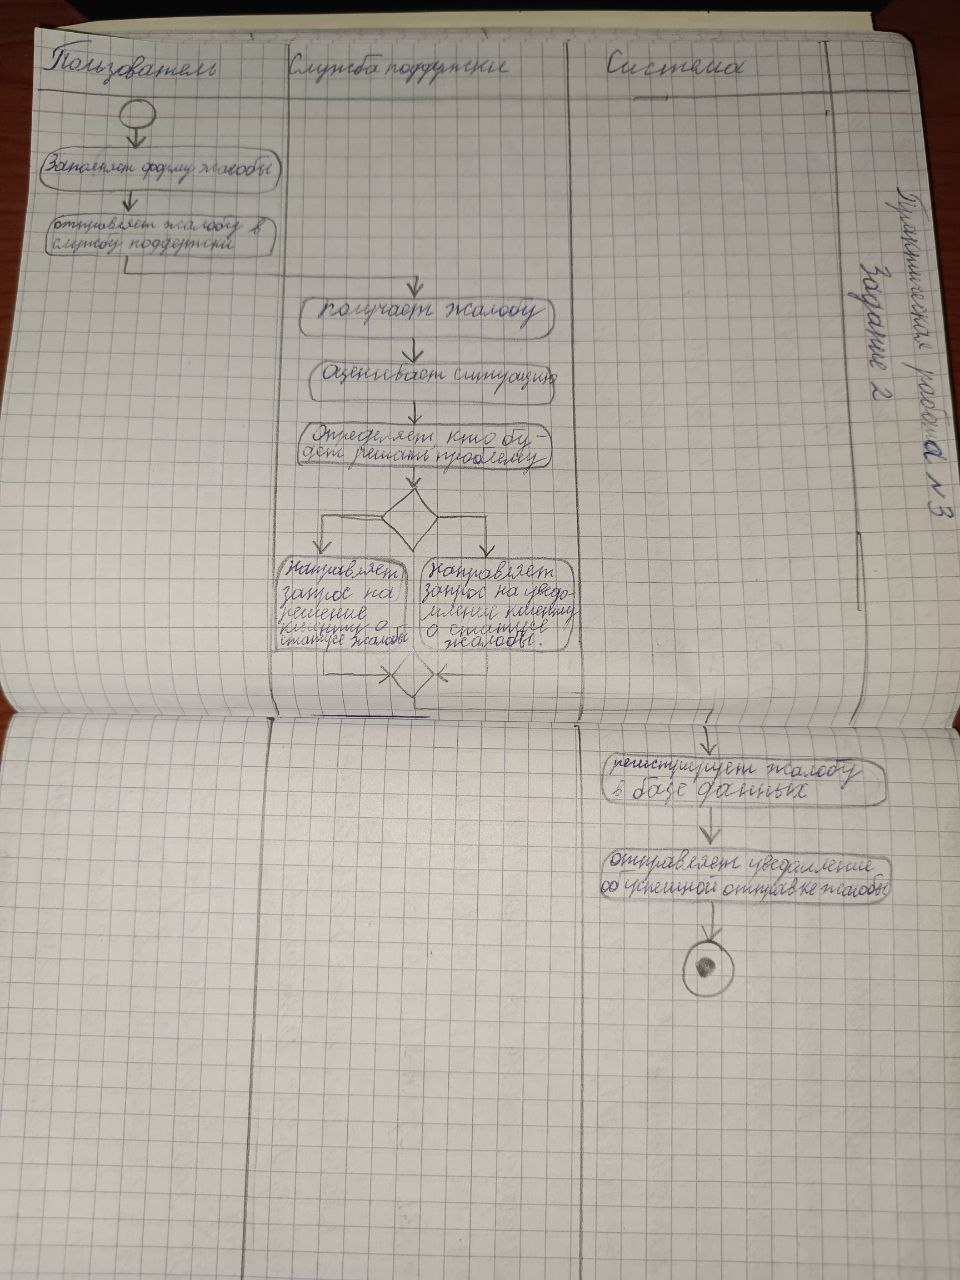 Пользователь
Служба поддержки
Система
Практическая работа №3
Задание 2
Заполняет форму жалобы
отправляет жалобу в
службу поддержки
получает жалобу
оценивает ситуацию
Определяет, кто бу-
дет решать проблему
Направляет
запрос на
решение
клиенту о
статусе жалобы
Направляет
запрос на уведо-
мление клиенту
о статусе
жалобы.
регистрирует жалобу
в базе данных
отправляет уведомление
об успешной отправке жалобы